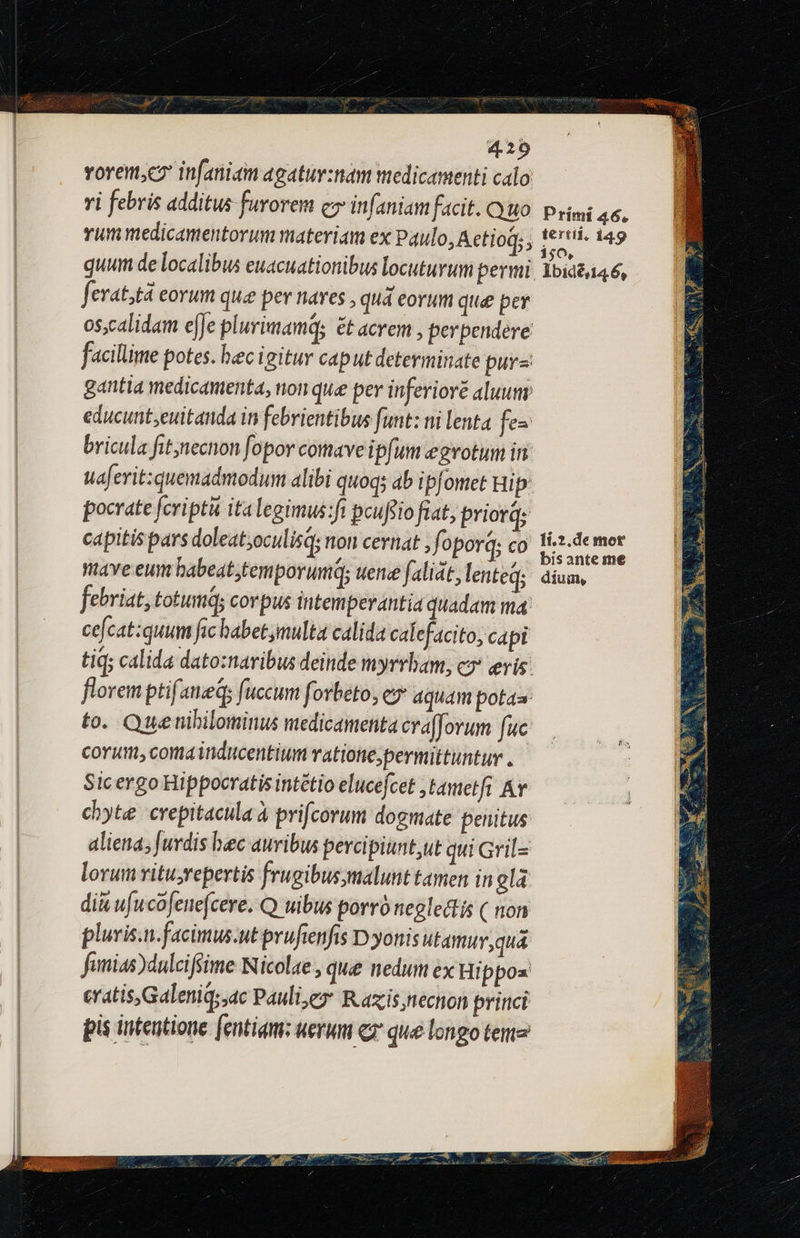 429
rorem,&amp; insaniam agatur:nam medicamenti calo
ri febris additus furorem &amp; insaniam facit. Quo
rum medicamentorum materiam ex Paulo, Aetioq́;,
quum de localibus euacuationibus locuturum permi
ſerat,tã eorum quæ per nares, quã eorum quæ per
os,calidam eſſe plurimamq́; et acrem, perpendere
facillime potes. hæc igitur caput determinate pur-
gantia medicamenta, non quæ per inferiorẽ aluum
educunt,euitanda in febrientibus ſunt: ni lenta fe-
bricula ſit,necnon ſopor comave ipſum ægrotum in
uaſerit:quemadmodum alibi quoq; ab ipſomet Hip
pocrate ſcriptũ ita legimus:ſi pcuſsio fiat, priorq́;
capitis pars doleat,oculisq́; non cernat, ſoporq́; co
mave eum habeat,temporumq́; uenæ ſaliãt, lenteq́;
febriat, totumq́; corpus intemperantia quadam ma
ceſcat:quum ſic habet,multa calida calefacito, capi
tiq́; calida dato:naribus deinde myrrham, &amp; æris
florem ptiſanæq́; ſuccum ſorbeto, &amp; aquam pota-
to. Quæ nihilominus medicamenta craſſorum ſuc
corum, coma inducentium ratione,permittuntur.
Sic ergo Hippocratis intẽtio eluceſcet, tametſi Ar
chytæ crepitacula à priſcorum dogmate penitus
aliena, ſurdis hæc auribus percipiunt,ut qui Gril-
lorum ritu,repertis frugibus,malunt tamen in glã
diũ uſu cõſeneſcere. Quibus porrò neglectis ( non
pluris.n.facimus.ut pruſienſis Dyonis utamur,quã
ſimias)dulciſsime Nicolae, quæ nedum ex Hippo-
cratis,Galeniq́;,ac Pauli,&amp; Razis,necnon princi
pis intentione ſentiam: uerum &amp; quæ longo tem-
Primi 46.
tertii. 149
150.
Ibidẽ,146,
li.2.de mor
bis ante me
dium,